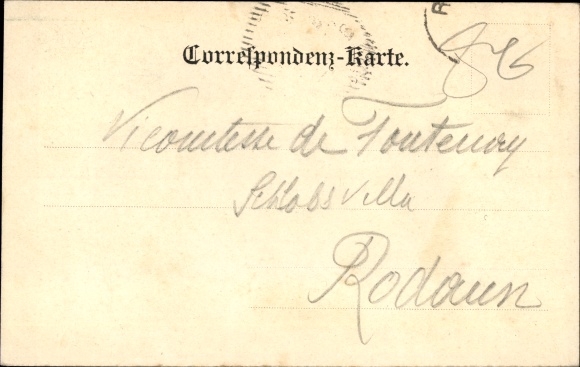 Correspondenz-Karte.
Vicomtesse de Fontenay
Schlobs Villa
Rodaun